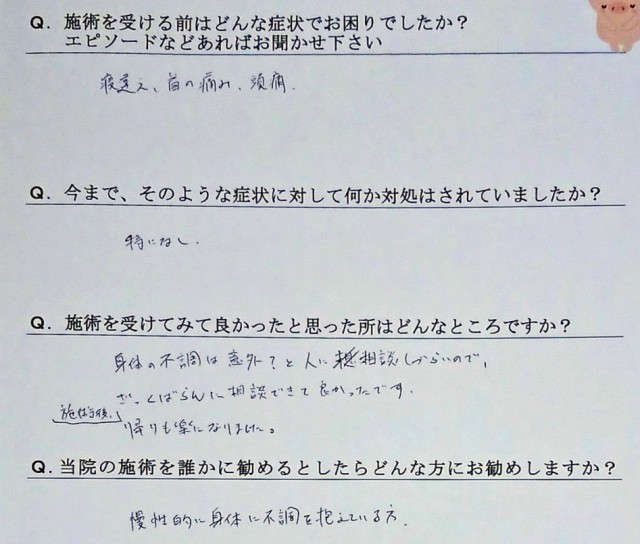 Q. 施術を受ける前はどんな症状でお困りでしたか？
エピソードなどあればお聞かせ下さい
寝違え、首の痛み、頭痛.
Q. 今まで、そのような症状に対して何か対処はされていましたか？
特になし.
Q. 施術を受けてみて良かったと思った所はどんなところですか？
身体の不調は意外？と人に相談しづらいので、
ざっくばらんに相談できて良かったです.
施術後、
帰りも楽になりました。
Q. 当院の施術を誰かに勧めるとしたらどんな方にお勧めしますか？
慢性的に身体に不調を抱えている方.